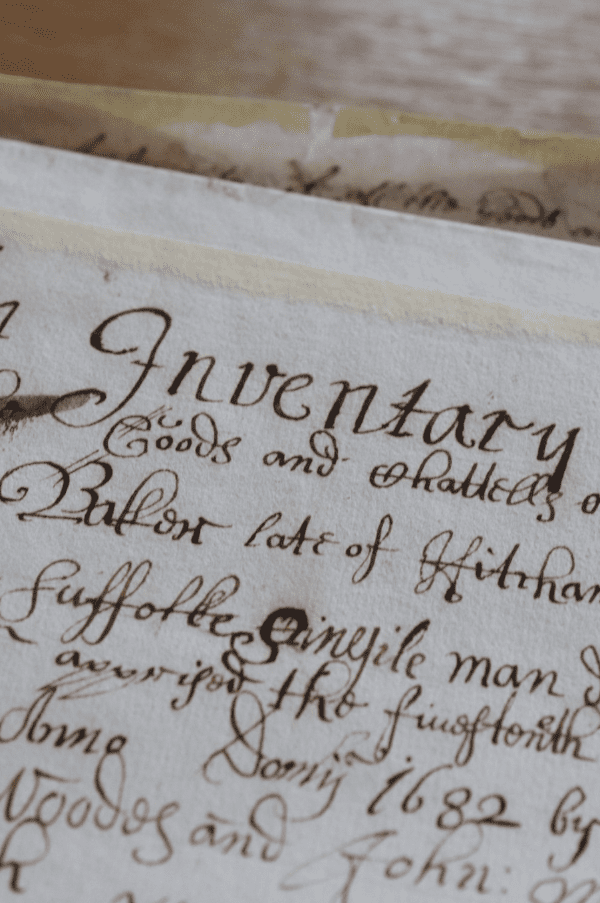 Inventary
Goods and Chattells o
Baker late of Hitcham
Suffolke Singile man
apprised the fiueftenth
Anno Domij 1682 by
Woodes and John: